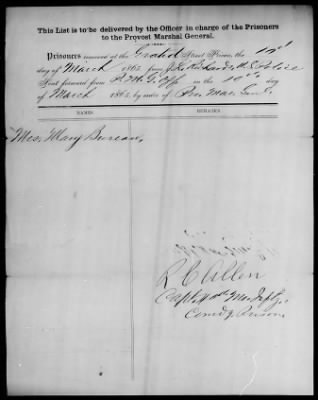 This List is to be delivered by the Officer in charge of the Prisoners
to the Provost Marshal General.
Prisoners received at the Gratiot Street Prison, the 10th
day of March 1865 from U.S. Police
Sent forward from P.M.G. Off in the 10th day
of March 1865 by order of Pro. Mar. Genl.
NAMES.
REMARKS.
Mrs. Mary
R C Allen
Capt Mo Inftry
Comdg Prison